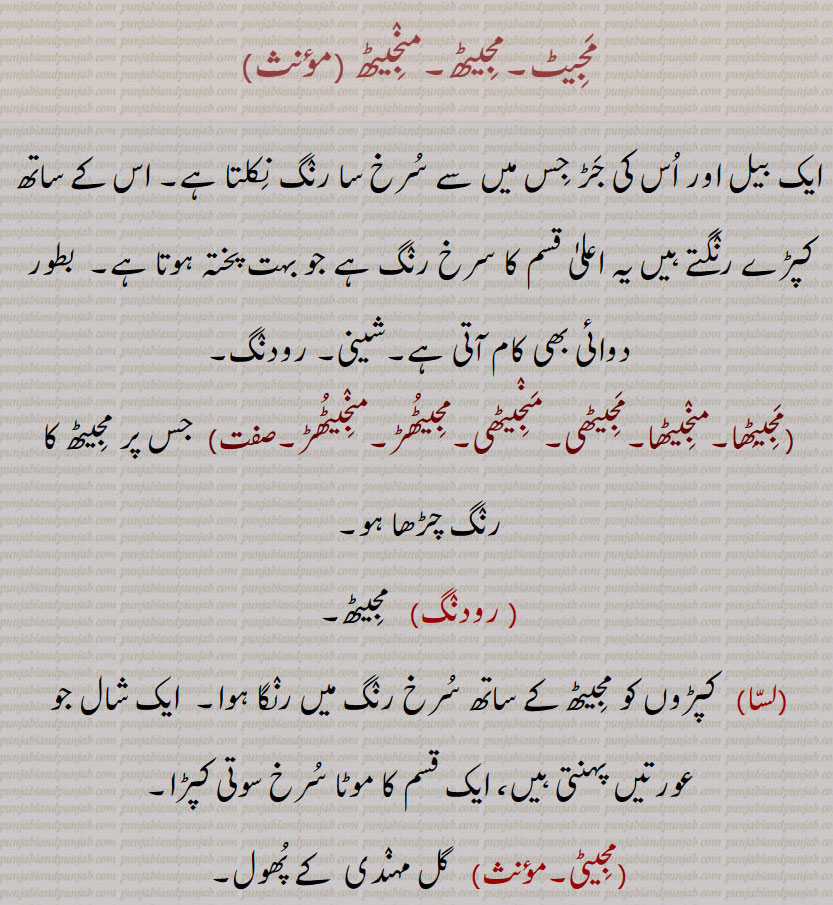 مَجِیٹ۔ مِجیٹھ۔ منٛجِیٹھ (مؤنث)
ایک بیل اور اُس کی جَڑ جِس میں سے سُرخ سا رنٛگ نِکلتا ہے۔ اس کے ساتھ
کپڑے رنٛگتے ہیں یہ اعلیٰ قسم کا سرخ رنٛگ ہے جو بہت پختہ ہوتا ہے۔ بطور
دوائی بھی کام آتی ہے۔ شینی۔ رودنٛگ۔
(مَجِیٹھا۔ منٛجِیٹھا۔ مَجِیٹھی۔ مَنٛجِیٹھی۔ مِجِیٹُھڑ۔ منٛجِیٹُھڑ۔ صفت) جس پر مِجیٹھ کا
رنٛگ چڑھا ہو۔
( رودنٛگ) مِجیٹھ۔
(لسّا) کپڑوں کو مِجیٹھ کے ساتھ سُرخ رنٛگ میں رنٛگا ہوا۔ ایک شال جو
عورتیں پہنتی ہیں، ایک قسم کا موٹا سُرخ سوتی کپڑا۔
(مِجِیٹی۔ مؤنث) گل مہنٛدی کے پُھول۔